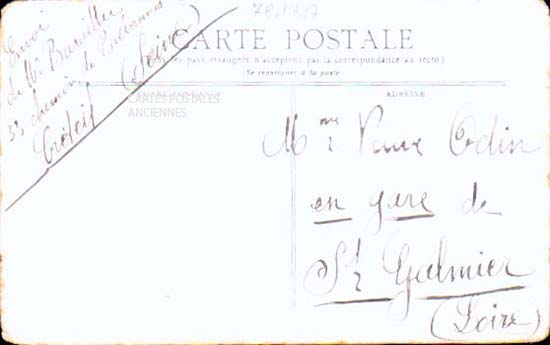 781217
Envoi
de Mr
33 chemin de Brévannes
Créteil (Seine)
CARTE POSTALE
(Tous les pays étrangers n'acceptent pas la correspondance au recto)
(Se renseigner à la poste)
CARTES POSTALES
ANCIENNES
ADRESSE
Mme Veuve Odin
en gare de
St Galmier
(Loire)